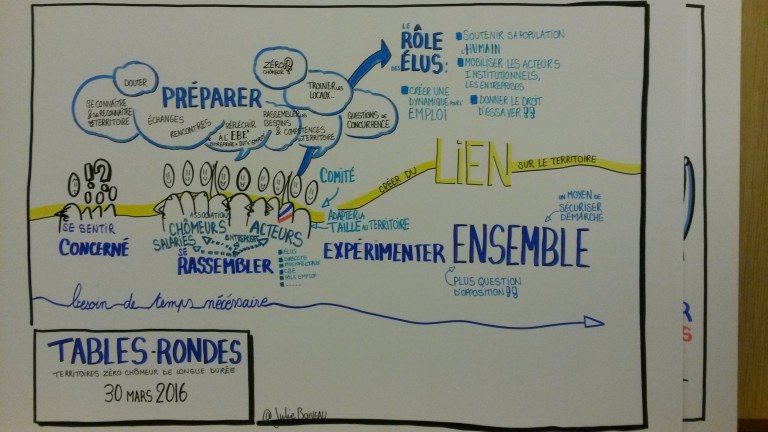 LE
RÔLE
DES
ÉLUS:
SOUTENIR SA POPULATION
L'HUMAIN
MOBILISER LES ACTEURS
INSTITUTIONNELS,
LES ENTREPRISES
CRÉER UNE
DYNAMIQUE
EMPLOI
DONNER LE DROIT
D'ESSAYER !!
ZÉRO
CHÔMEUR
DOUTER
SE CONNAÎTRE
& se RECONNAÎTRE
TERRITOIRE
PRÉPARER
TROUVER LES
LOCAUX...
ÉCHANGES
RENCONTRES
RÉFLÉCHIR
À L'EBE*
RASSEMBLER LES
BESOINS
& COMPÉTENCES
TERRITOIRE
QUESTIONS DE
CONCURRENCE
!?!
SE SENTIR
CONCERNÉ
ASSOCIATION
CHÔMEURS
SALARIÉS
ENTREPRISES
ACTEURS
SE
RASSEMBLER
ÉLUS
EBE
PÔLE EMPLOI
......
COMITÉ
ADAPTER LA
TAILLE AU TERRITOIRE
CRÉER DU
LIEN
SUR LE TERRITOIRE
EXPÉRIMENTER
ENSEMBLE
UN MOYEN DE
SÉCURISER
DÉMARCHE
PLUS QUESTION
D'OPPOSITION !!
besoin de temps nécessaire
TABLES-RONDES
TERRITOIRES ZÉRO CHÔMEUR DE LONGUE DURÉE
30 MARS 2016
@Julie Boiveau
R
S